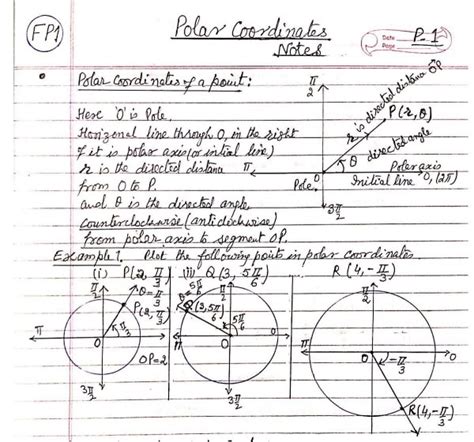 FP1
Polar Coordinates
Notes
Date
Page
P-1
Polar Coordinates of a point:
Here 'O' is Pole.
Horizonal line through O, in the right
of it is polar axis (or initial line)
r is the directed distance
from O to P.
and θ is the directed angle
counterclockwise (anticlockwise)
from polar axis to segment OP.
π/2
r is directed distance OP
P(r, θ)
θ directed angle
π
Pole O
Polar axis
Initial line 0, (2π)
3π/2
Example 1. Plot the following points in polar coordinates.
(i) P(2, π/3)
(ii) Q(3, 5π/6)
R(4, -π/3)
π/2
θ=π/3
P(2, π/3)
π/3
π
O
OP=2
3π/2
π/2
θ=5π/6
Q(3, 5π/6)
5π/6
π
O
0
3π/2
π/2
π
O
0
-π/3
R(4, -π/3)
3π/2